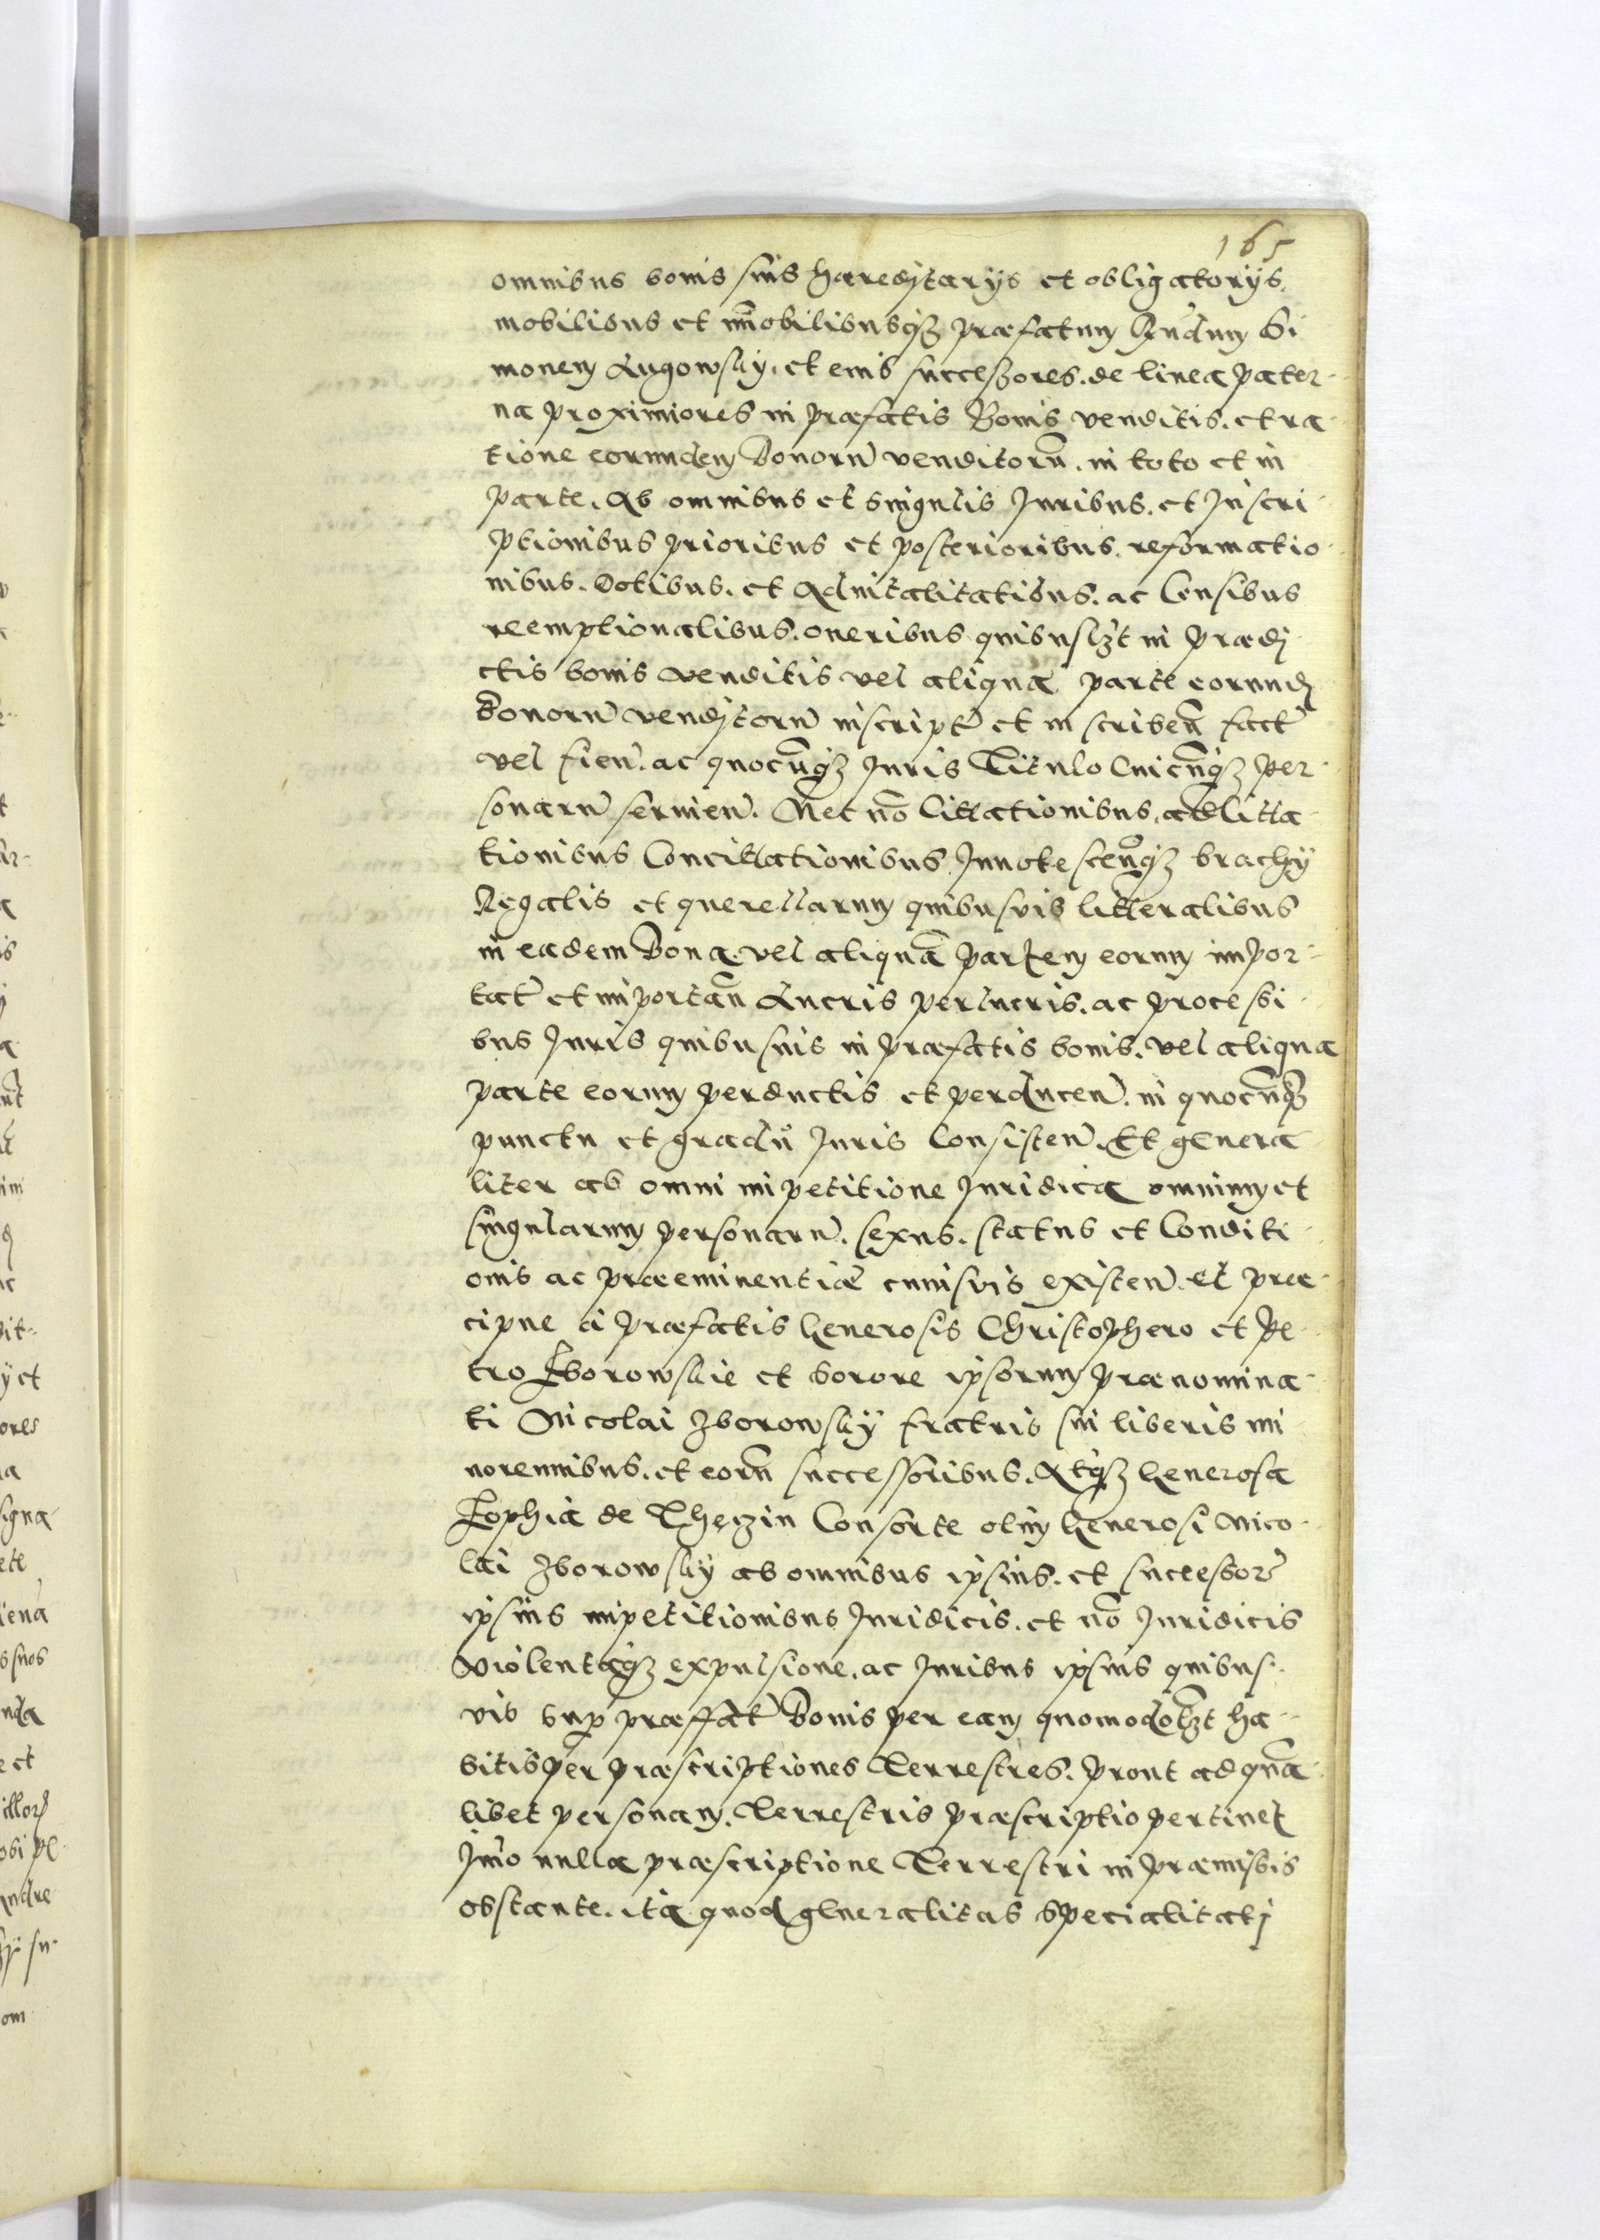 165
omnibus bonis suis hæreditarijs et obligatorijs
mobilibus et īmobilibusq₃ præfatum Gn̄dum Si
monem Lugowsky, et eius successores, de linea pater-
na proximiores in præfatis Bonis venditis, et ra-
tione eorundem Bonorū venditorū, in toto et in
parte. Ab omnibus et singulis Iuribus, et Inscri-
ptionibus prioribus et posterioribus, reformatio-
nibus. Dotibus. et Aduitalitatibus. ac Censibus
reemptionalibus. oneribus quibuslꝫt in prædi-
ctis bonis venditis vel aliqua parte eorund
Bonorū venditorū inscript̄ et inscriben̄ fact̄
vel fien̄. ac quocūq₃ Iuris Titulo cuicūq₃ per-
sonarū seruien̄. Nec nō Cittationibus, adcitta-
tionibus Concittationibus Innotescen̄q₃ brachÿ
Regalis et querellarum quibusvis litteralibus
in eadem Bona, vel aliquā partem eorum impor-
tat̄ et importan̄ Lucris perlucris. ac processi-
bus Iuris quibusuis in præfatis bonis. vel aliqua
parte eorum perductis et perducen̄. in quocūq₃
punctu et gradu Iuris Consisten̄. Et genera-
liter ab omni impetitione Iuridica omnium et
singularum personarū. sexus. status et Conditi-
onis ac præeminentiæ cuiusvis existen̄. Et præ-
cipue à præfatis Generosis Christophero et Pe-
tro Zborowskie et sorore ipsorum prænomina-
ti Nicolai Zborowskÿ fratris sui liberis mi
norennibus. et eorū successoribus. Atq₃ Generosa
Zophia de Consorte olim Generosi Nico-
lai Zborowskÿ ab omnibus ipsius. et successor̄
ipsius impetitionibus Iuridicis. et nō Iuridicis
Violentaq₃ expulsione. ac Iuribus ipsius quibus-
vis sup præffat̄ Bonis per eam quomodolꝫt ha-
bitis per præscriptiones Terrestres. prout ad quā-
libet personam. Terrestris præscriptio pertinet
Imo nulla præscriptione Terrestri in præmissis
obstante. ita quod generalitas Specialitati